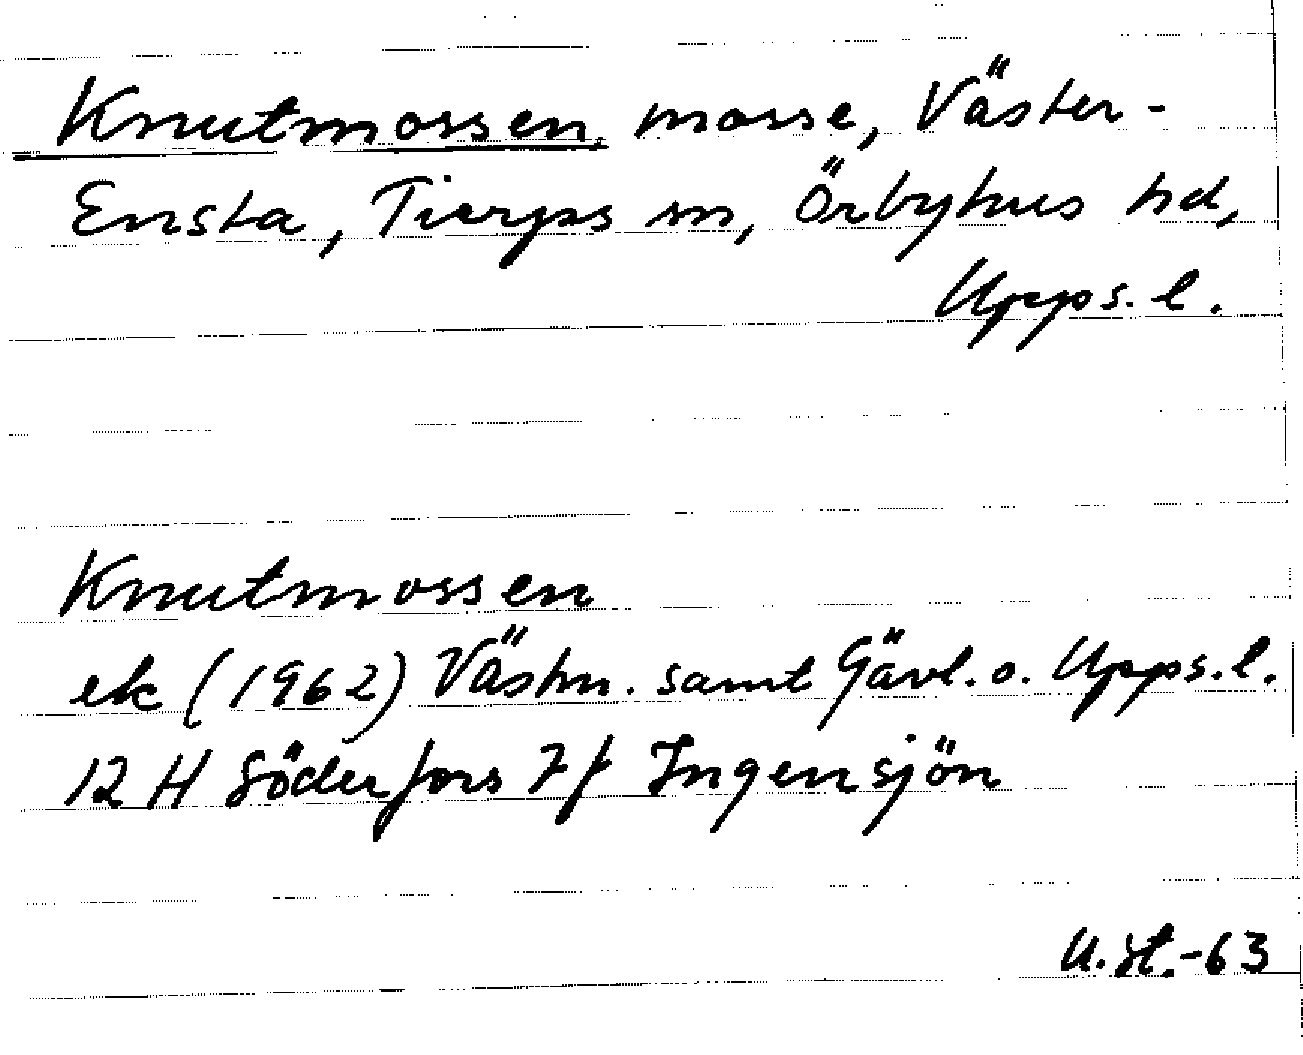 Knutmossen, mosse, Väster-
Ensta, Tierps sn, Örbyhus hd,
Upps. l.
Knutmossen
ek (1962) Västm. samt Gävl. o. Upps. l.
12 H Söderfors 7f Ingensjön
U. St.-63